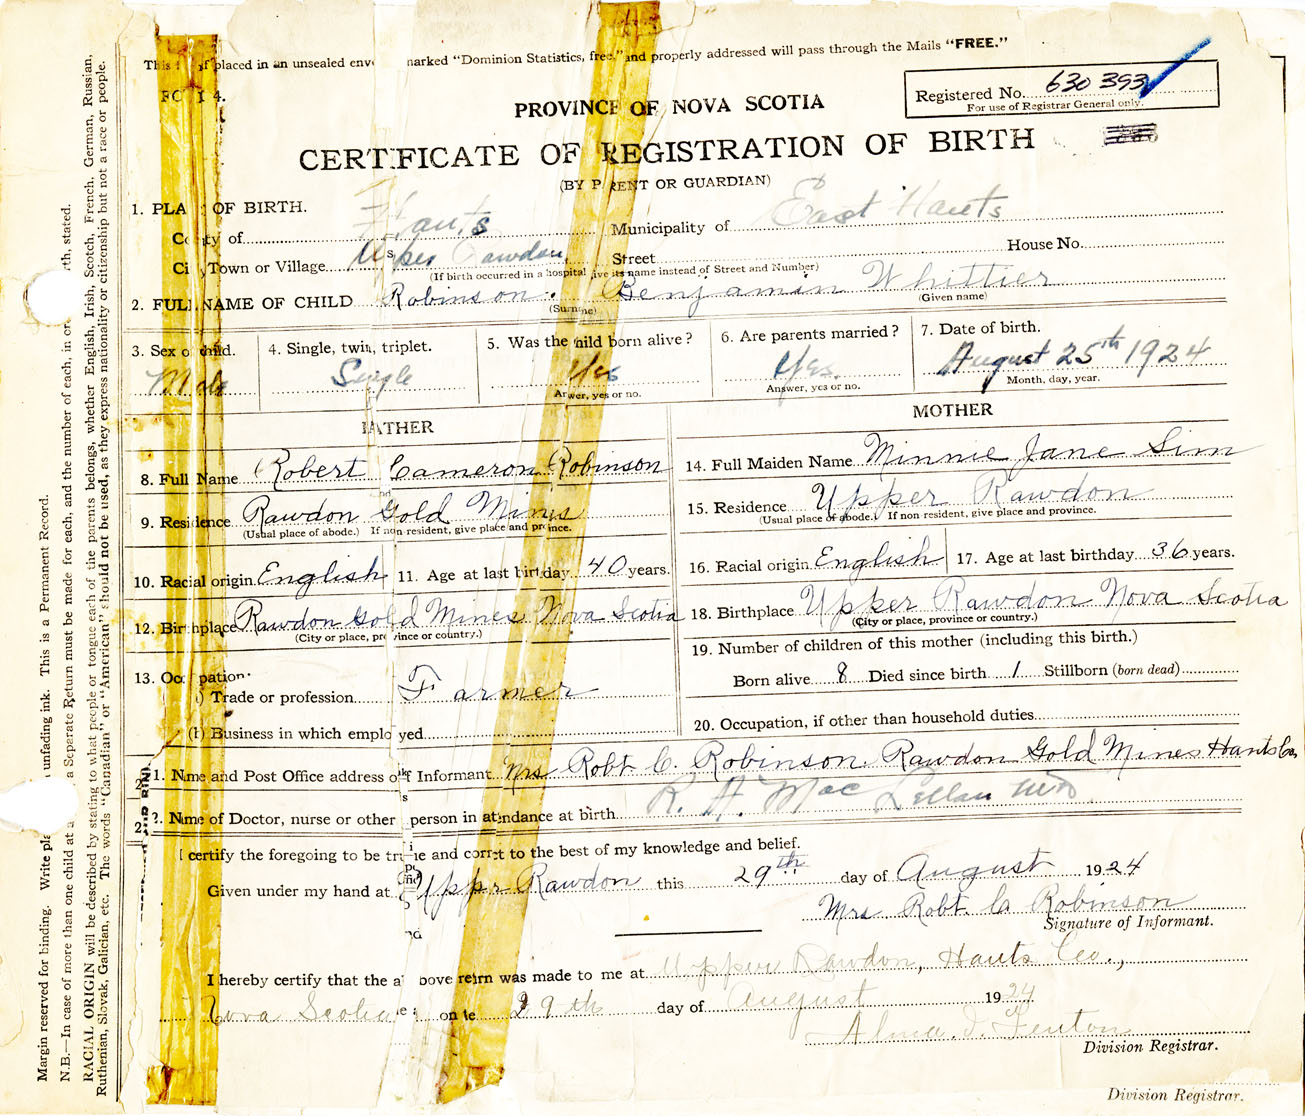 This if placed in an unsealed enve marked "Dominion Statistics, free," and properly addressed will pass through the Mails "FREE."
FO 4.
Registered No. 630 393
For use of Registrar General only.
PROVINCE OF NOVA SCOTIA
CERTIFICATE OF REGISTRATION OF BIRTH
(BY PARENT OR GUARDIAN)
1. PLACE OF BIRTH.
County of Hants Municipality of East Hants
City, Town or Village Upper Rawdon Street House No.
(If birth occurred in a hospital give its name instead of Street and Number)
2. FULL NAME OF CHILD Robinson. Benjamin Whittier
(Surname) (Given name)
3. Sex of child. 4. Single, twin, triplet. 5. Was the child born alive? 6. Are parents married? 7. Date of birth.
Male Single Yes Yes. August 25th 1924
Answer, yes or no. Answer, yes or no. Month, day, year.
FATHER MOTHER
8. Full Name Robert Cameron Robinson 14. Full Maiden Name Minnie Jane Sim
9. Residence Rawdon Gold Mines 15. Residence Upper Rawdon
(Usual place of abode.) If non-resident, give place and province. (Usual place of abode.) If non-resident, give place and province.
10. Racial origin English 11. Age at last birthday 40 years. 16. Racial origin English 17. Age at last birthday 36 years.
12. Birthplace Rawdon Gold Mines Nova Scotia 18. Birthplace Upper Rawdon Nova Scotia
(City or place, province or country.) (City or place, province or country.)
13. Occupation. 19. Number of children of this mother (including this birth.)
) Trade or profession Farmer Born alive 8 Died since birth 1 Stillborn (born dead)
(b) Business in which employed 20. Occupation, if other than household duties
21. Name and Post Office address of Informant Mrs Robt C. Robinson. Rawdon Gold Mines Hants Co,
22. Name of Doctor, nurse or other person in attendance at birth R. H. MacLellan MD
I certify the foregoing to be true and correct to the best of my knowledge and belief.
Given under my hand at Upper Rawdon this 29th day of August 1924
Mrs Robt C Robinson
Signature of Informant.
I hereby certify that the above return was made to me at Upper Rawdon, Hants Co.,
Nova Scotia on the 29th day of August 1924
Alma I. Fenton
Division Registrar.
Division Registrar.
Margin reserved for binding. Write pla unfading ink. This is a Permanent Record.
N.B.—In case of more than one child at a Separate Return must be made for each, and the number of each, in or rth, stated.
RACIAL ORIGIN will be described by stating to what people or tongue each of the parents belongs, whether English, Irish, Scotch, French, German, Russian,
Ruthenian, Slovak, Galician, etc. The words "Canadian" or "American" should not be used, as they express nationality or citizenship but not a race or people.